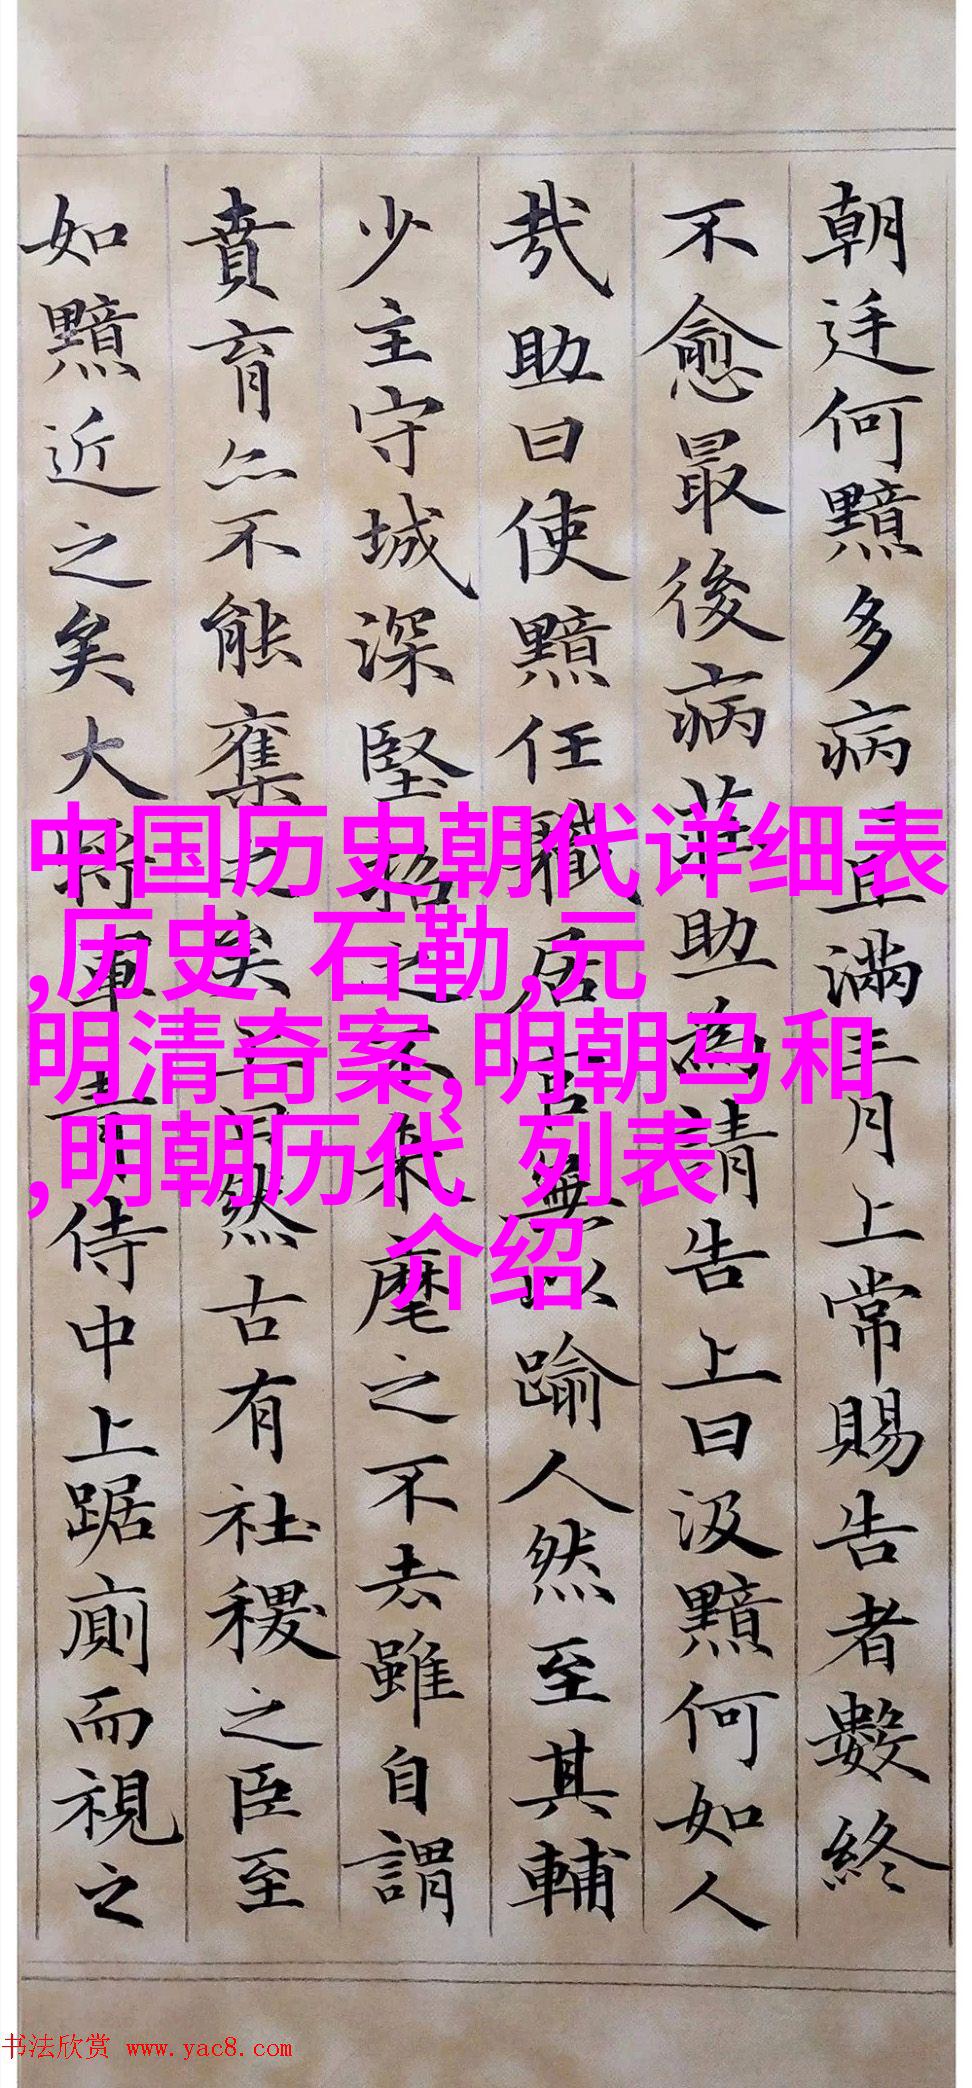 朝廷何黯多病且滿三月上常賜告者數終
不愈最後病莊助為請告上曰汲黯何如人
哉助曰使黯任職居官無以踰人然至其輔
少主守城深堅招之不來麾之不去雖自謂
賁育亦不能奪之矣上曰然古有社稷之臣至
如黯近之矣大將軍青侍中上踞廁而視之
中国历史朝代详细表
,历史 石勒,元
明清奇案,明朝马和
,明朝历代 列表
介绍
书法欣赏 www.yac8.com